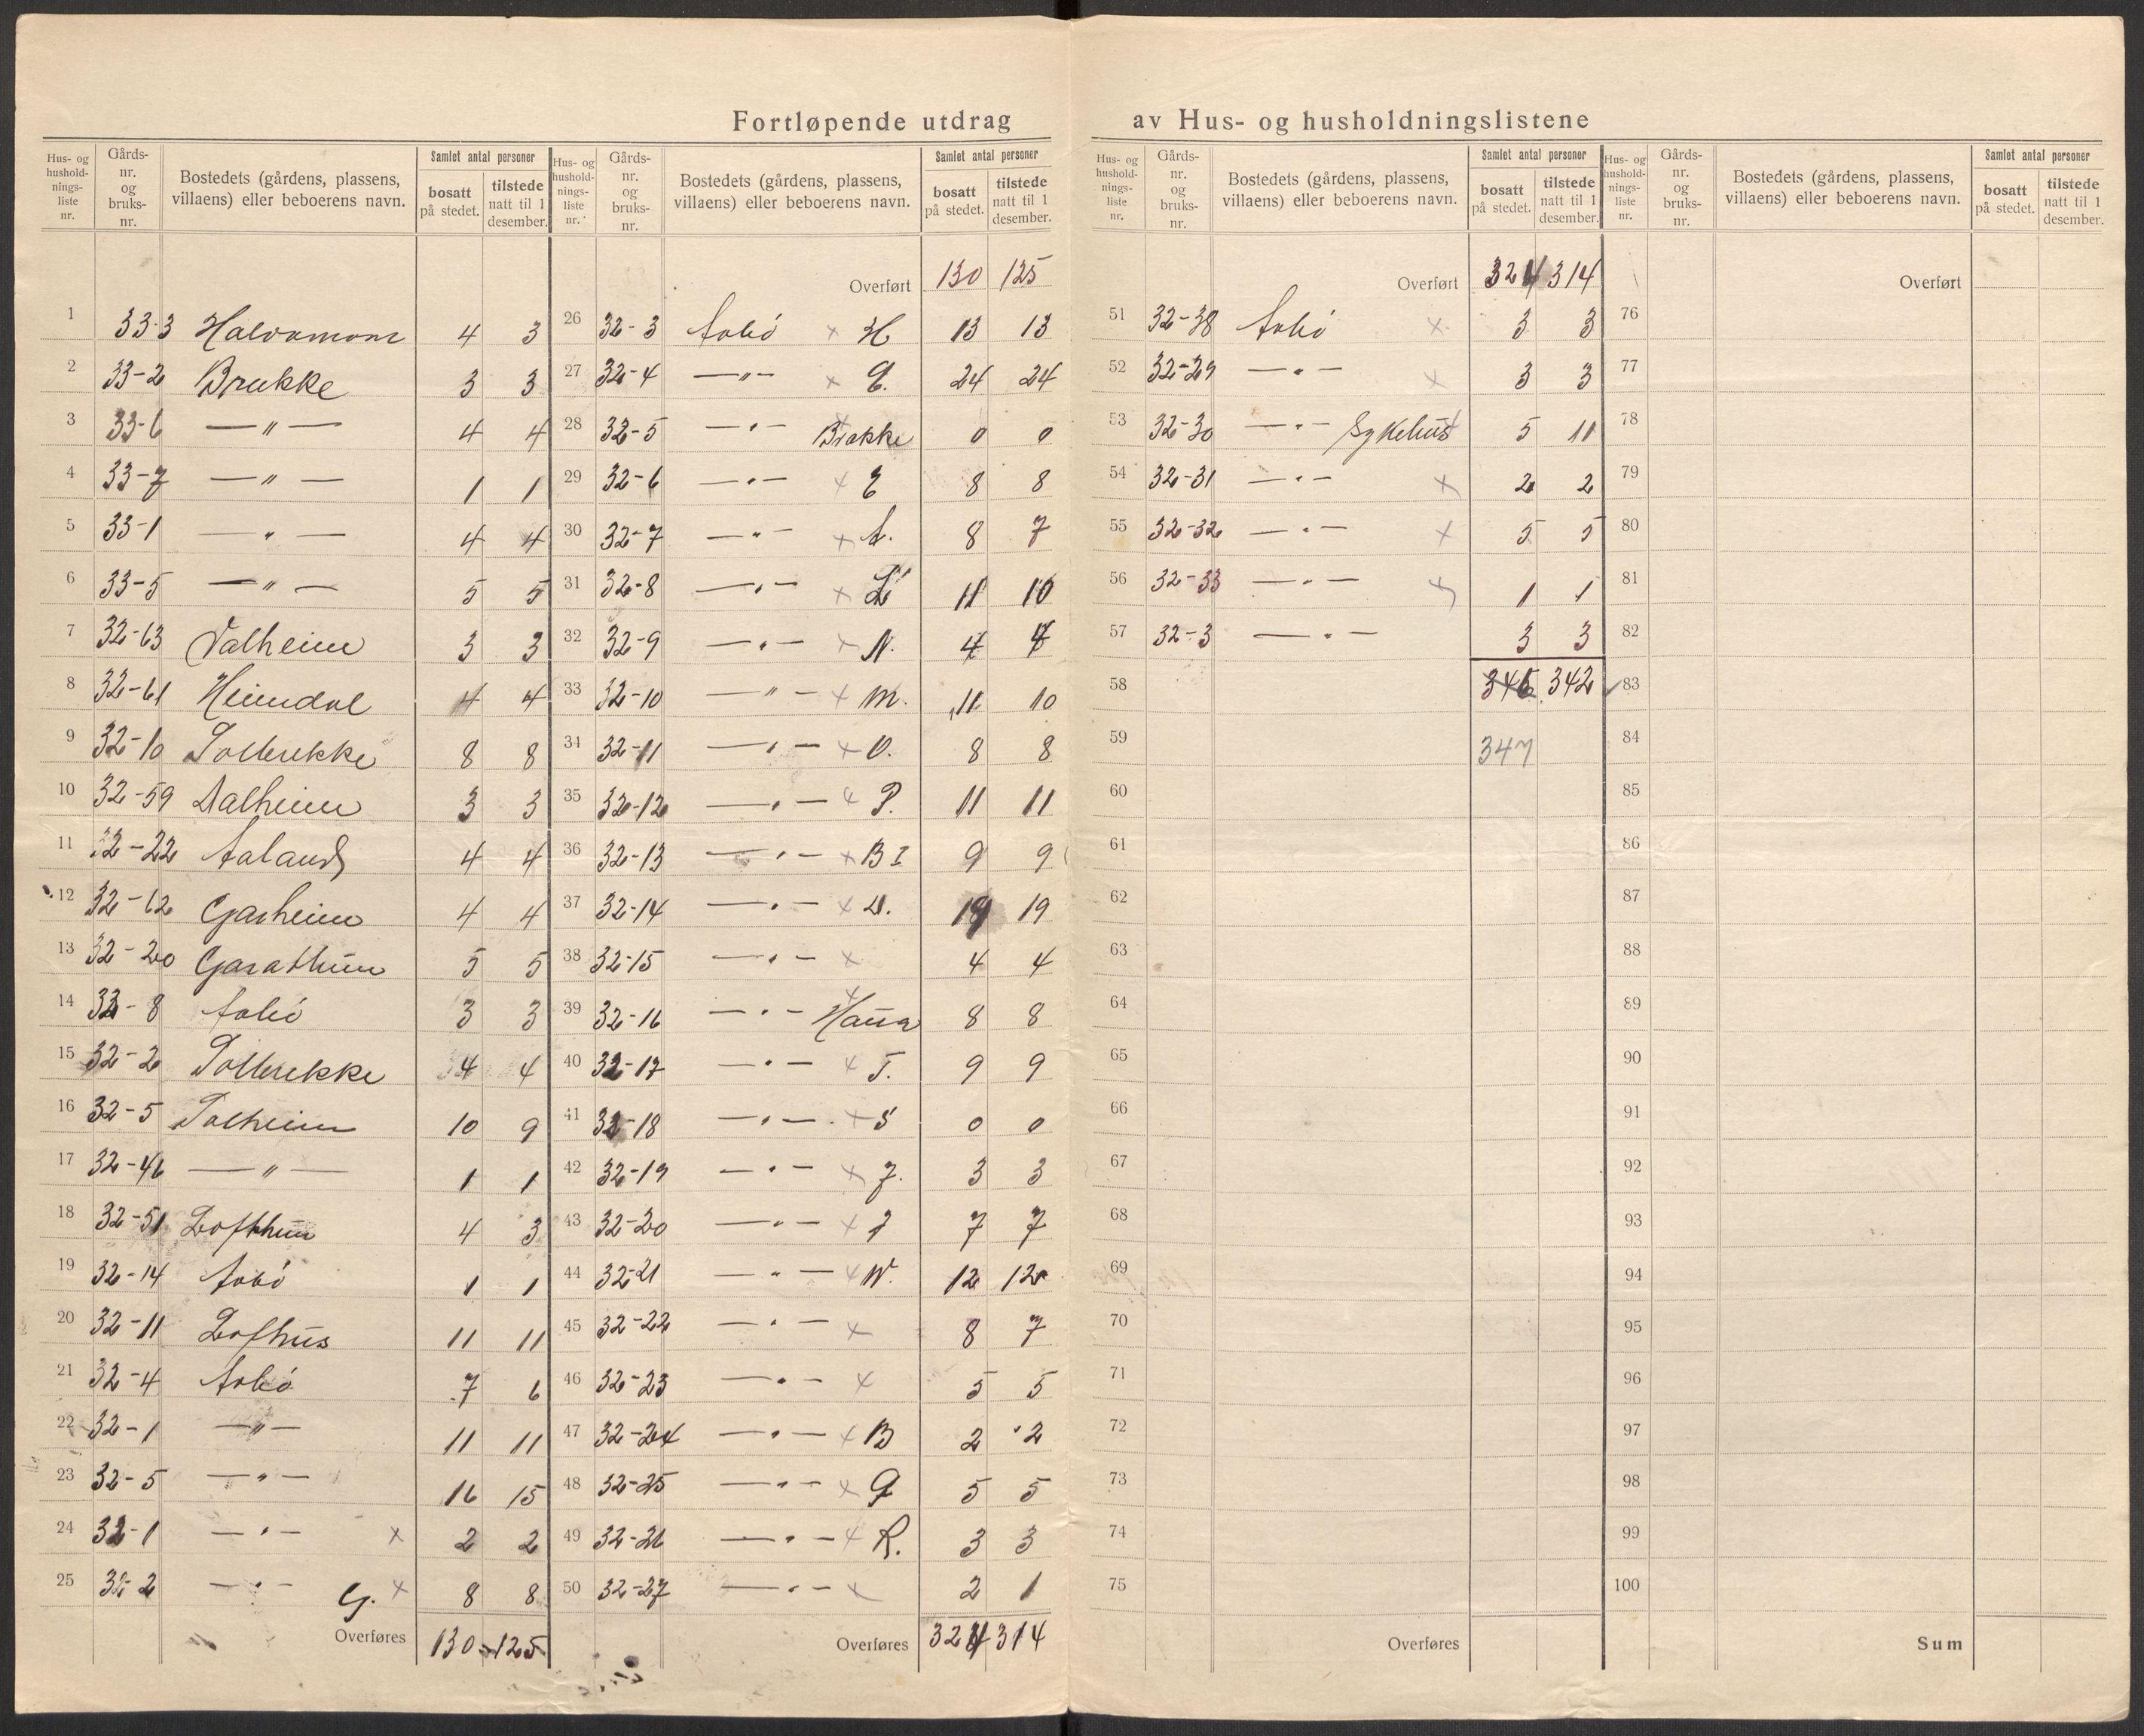 Fortløpende utdrag av Hus- og husholdningslistene
Hus- og hushold-nings-liste nr. Gårds-nr. og bruks-nr. Bostedets (gårdens, plassens, villaens) eller beboerens navn. Samlet antal personer bosatt på stedet. tilstede natt til 1 desember.
1 33-3 Halvomoen 4 3
2 33-2 Brukke 3 3
3 33-6 —"— 4 4
4 33-7 —"— 1 1
5 33-1 —"— 4 4
6 33-5 —"— 5 5
7 32-63 Dalheim 3 3
8 32-61 Heimdal 4 4
9 32-10 8 8
10 32-59 Dalheim 3 3
11 32-22 Aaland 4 4
12 32-62 Garheim 4 4
13 32-20 5 5
14 32-8 Aabø 3 3
15 32-2 4 4
16 32-5 10 9
17 32-46 —"— 1 1
18 32-51 4 3
19 32-14 Aabø 1 1
20 32-11 Lofthus 11 11
21 32-4 Aabø 7 6
22 32-1 —"— 11 11
23 32-5 —"— 16 15
24 32-1 —"— x 2 2
25 32-2 —"— G. x 8 8
Overføres 130 125
Hus- og hushold-nings-liste nr. Gårds-nr. og bruks-nr. Bostedets (gårdens, plassens, villaens) eller beboerens navn. Samlet antal personer bosatt på stedet. tilstede natt til 1 desember.
Overført 130 125
26 32-3 Aabø x H 13 13
27 32-4 —"— x 24 24
28 32-5 —"— Brakke 0 0
29 32-6 —"— x E 8 8
30 32-7 —"— x A. 8 7
31 32-8 —"— x L 11 10
32 32-9 —"— x N. 4 4
33 32-10 —"— x M. 11 10
34 32-11 —"— x O. 8 8
35 32-12 —"— x P. 11 11
36 32-13 —"— x B I 9 9
37 32-14 —"— x D. 19 19
38 32-15 —"— x 4 4
39 32-16 —"— x 8 8
40 32-17 —"— x T. 9 9
41 32-18 —"— x S 0 0
42 32-19 —"— x 3 3
43 32-20 —"— x 7 7
44 32-21 —"— x W. 12 12
45 32-22 —"— x 8 7
46 32-23 —"— x 5 5
47 32-24 —"— x B 2 2
48 32-25 —"— x 5 5
49 32-26 —"— x R. 3 3
50 32-27 —"— x 2 1
Overføres 324 314
Hus- og hushold-nings-liste nr. Gårds-nr. og bruks-nr. Bostedets (gårdens, plassens, villaens) eller beboerens navn. Samlet antal personer bosatt på stedet. tilstede natt til 1 desember.
Overført 324 314
51 32-38 Aabø x 3 3
52 32-29 —"— x 3 3
53 32-30 —"— Sykehus x 5 11
54 32-31 —"— x 2 2
55 32-32 —"— x 5 5
56 32-33 —"— x 1 1
57 32-3 —"— 3 3
58 346 342
59 347
60
61
62
63
64
65
66
67
68
69
70
71
72
73
74
75
Overføres
Hus- og hushold-nings-liste nr. Gårds-nr. og bruks-nr. Bostedets (gårdens, plassens, villaens) eller beboerens navn. Samlet antal personer bosatt på stedet. tilstede natt til 1 desember.
Overført
76
77
78
79
80
81
82
83
84
85
86
87
88
89
90
91
92
93
94
95
96
97
98
99
100
Sum